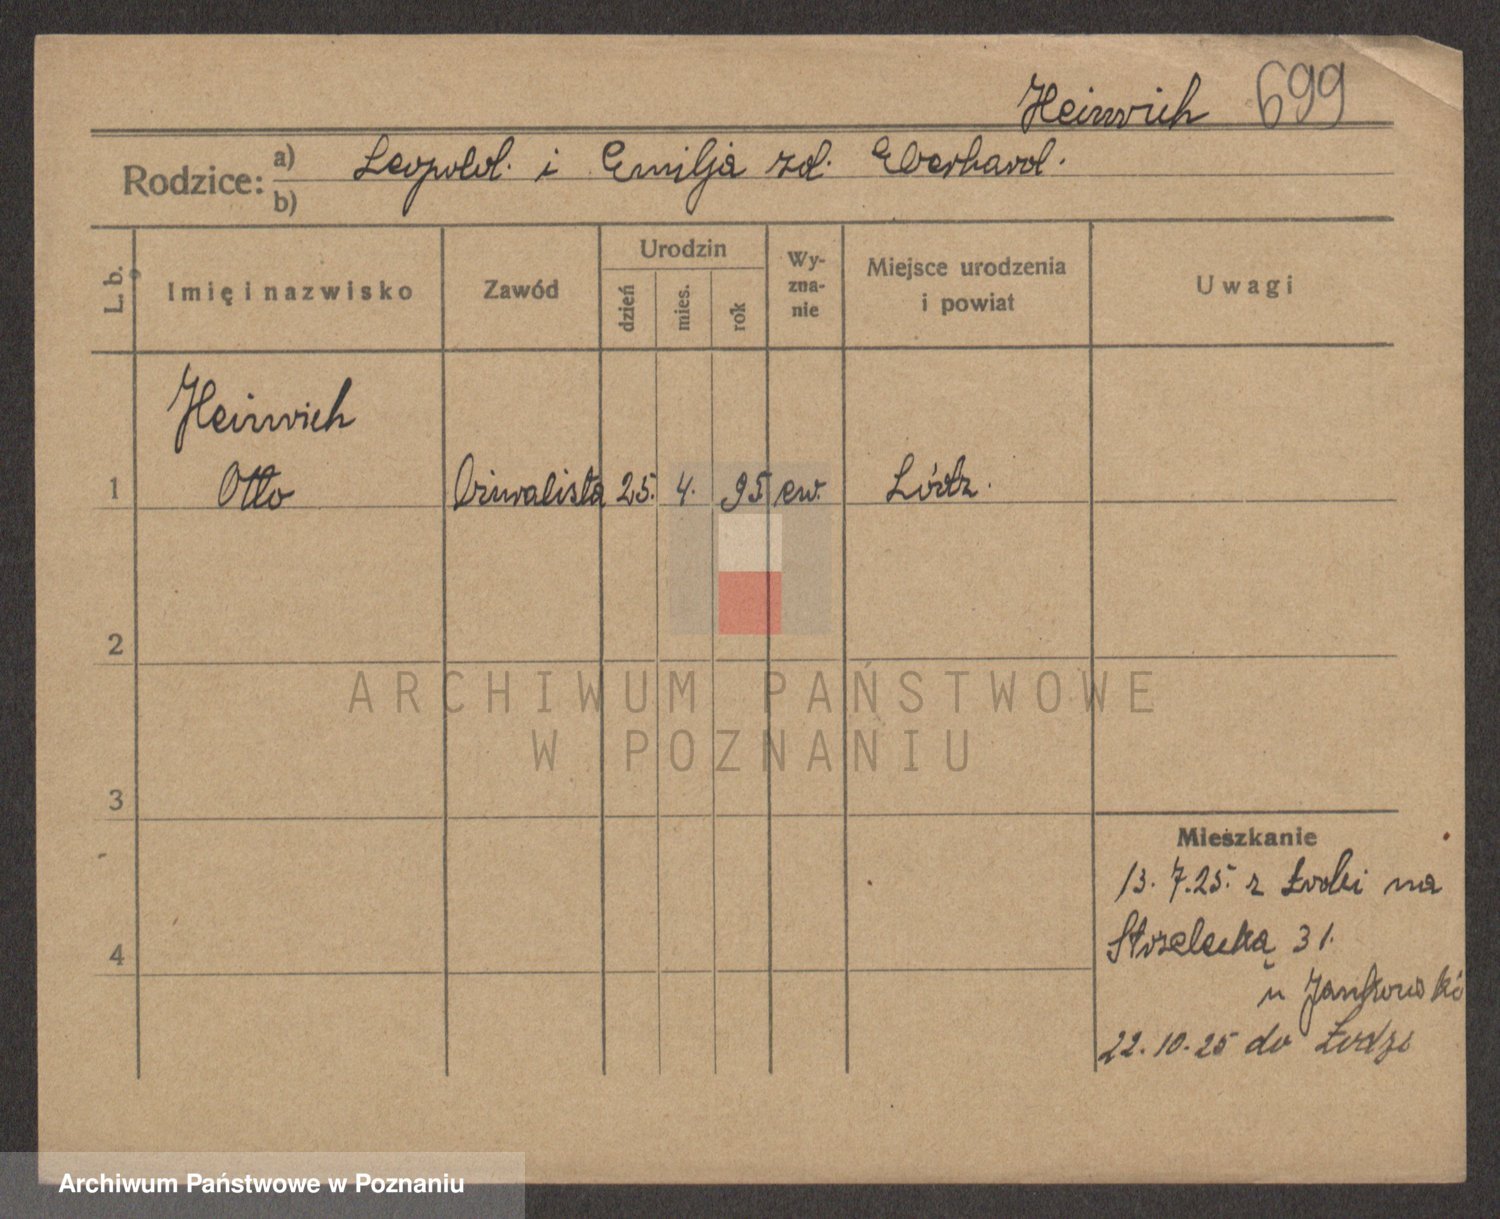 Heinrich 699
Rodzice: a) Leopold. i Emilja zd. Eberhard.
b)
L. b. Imię i nazwisko Zawód Urodzin dzień mies. rok Wy-zna-nie Miejsce urodzenia i powiat Uwagi
Heinrich
1 Otto 25. 4. 95 ew. Łódz.
2
3
4
Mieszkanie
13. 7. 25. z Łodzi na
Strzelecka 31.
u Jankowski
22. 10. 25 do Łodzi
ARCHIWUM PAŃSTWOWE
W POZNANIU
Archiwum Państwowe w Poznaniu